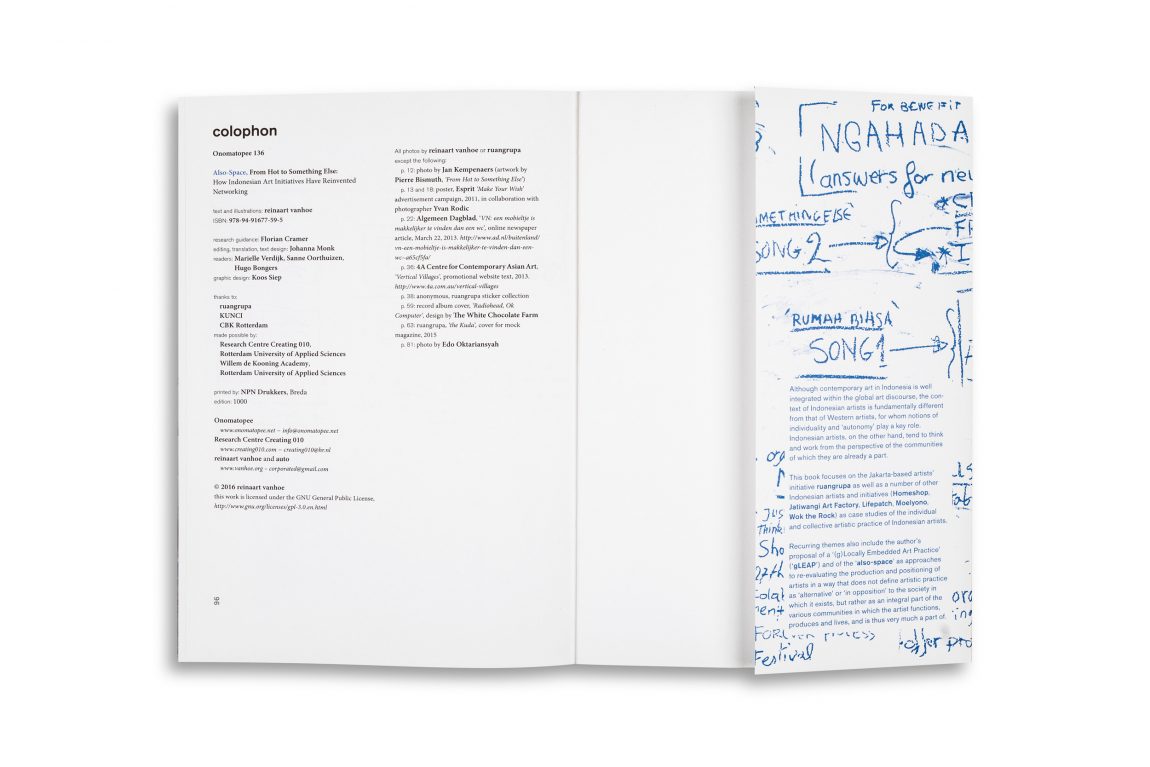 colophon
Onomatopee 136
Also-Space, From Hot to Something Else:
How Indonesian Art Initiatives Have Reinvented
Networking
text and illustrations: reinaart vanhoe
ISBN: 978-94-91677-59-5
research guidance: Florian Cramer
editing, translation, text design: Johanna Monk
readers: Marielle Verdijk, Sanne Oorthuizen,
Hugo Bongers
graphic design: Koos Siep
thanks to:
ruangrupa
KUNCI
CBK Rotterdam
made possible by:
Research Centre Creating 010,
Rotterdam University of Applied Sciences
Willem de Kooning Academy,
Rotterdam University of Applied Sciences
printed by: NPN Drukkers, Breda
edition: 1000
Onomatopee
www.onomatopee.net – info@onomatopee.net
Research Centre Creating 010
www.creating010.com – creating010@hr.nl
reinaart vanhoe and auto
www.vanhoe.org – corporated@gmail.com
© 2016 reinaart vanhoe
this work is licensed under the GNU General Public License.
http://www.gnu.org/licenses/gpl-3.0.en.html
96
All photos by reinaart vanhoe or ruangrupa
except the following:
p. 12: photo by Jan Kempenaers (artwork by
Pierre Bismuth, 'From Hot to Something Else')
p. 13 and 18: poster, Esprit 'Make Your Wish'
advertisement campaign, 2011, in collaboration with
photographer Yvan Rodic
p. 22: Algemeen Dagblad, 'VN: een mobieltje is
makkelijker te vinden dan een wc', online newspaper
article, March 22, 2013. http://www.ad.nl/buitenland/
vn-een-mobieltje-is-makkelijker-te-vinden-dan-een-
wc~a65cf5fa/
p. 36: 4A Centre for Contemporary Asian Art,
'Vertical Villages', promotional website text, 2013.
http://www.4a.com.au/vertical-villages
p. 38: anonymous, ruangrupa sticker collection
p. 59: record album cover, 'Radiohead, Ok
Computer', design by The White Chocolate Farm
p. 63: ruangrupa, 'the Kuda', cover for mock
magazine, 2015
p. 81: photo by Edo Oktariansyah
FOR BENEFIT
NGAHADA
answers for neu
METHINGELSE'
SONG 2
'RUMAH BIASA'
SONG 1
Although contemporary art in Indonesia is well
integrated within the global art discourse, the con-
text of Indonesian artists is fundamentally different
from that of Western artists, for whom notions of
individuality and 'autonomy' play a key role.
Indonesian artists, on the other hand, tend to think
and work from the perspective of the communities
of which they are already a part.
This book focuses on the Jakarta-based artists'
initiative ruangrupa as well as a number of other
Indonesian artists and initiatives (Homeshop,
Jatiwangi Art Factory, Lifepatch, Moelyono,
Wok the Rock) as case studies of the individual
and collective artistic practice of Indonesian artists.
Recurring themes also include the author's
proposal of a '(g)Locally Embedded Art Practice'
('gLEAP') and of the 'also-space' as approaches
to re-evaluating the production and positioning of
artists in a way that does not define artistic practice
as 'alternative' or 'in opposition' to the society in
which it exists, but rather as an integral part of the
various communities in which the artist functions,
produces and lives, and is thus very much a part of.
Festival